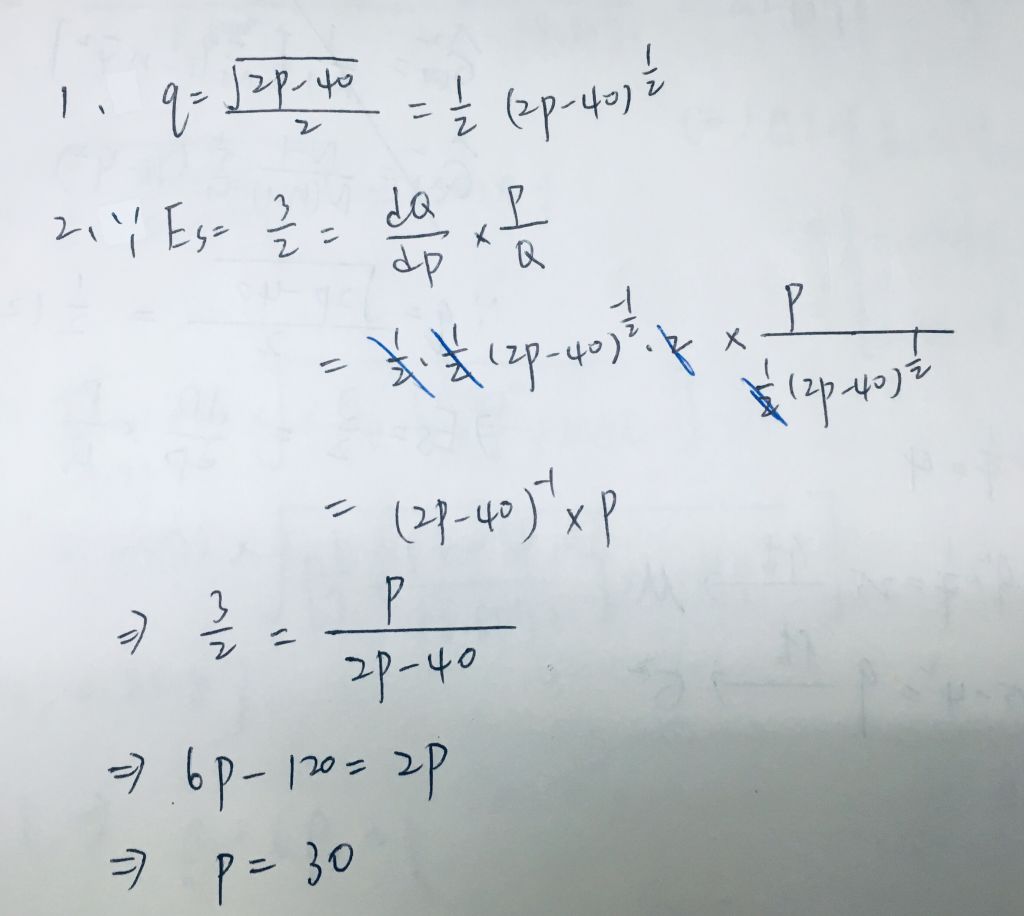 1. q = √(2p-40) / 2 = 1/2 (2p-40)^(1/2)
2. ∵ Es = 3/2 = dQ/dp × P/Q
= 1/2 · 1/2 (2p-40)^(-1/2) · 2 × P / (1/2 (2p-40)^(1/2))
= (2p-40)^(-1) × P
⇒ 3/2 = P / (2p-40)
⇒ 6p - 120 = 2p
⇒ p = 30